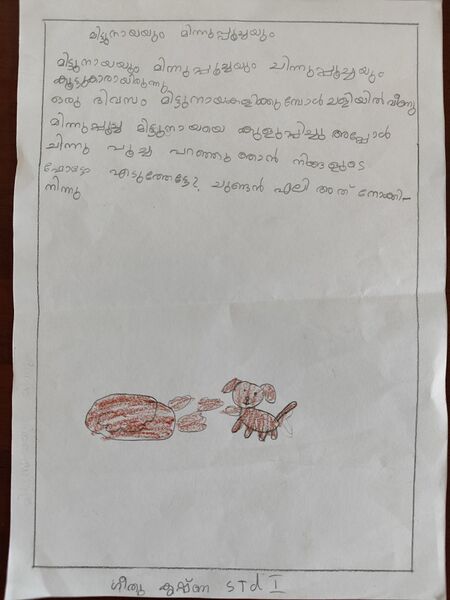 മിട്ടുനായയും മിന്നുപ്പൂച്ചയും
മിട്ടുനായയും മിന്നുപ്പൂച്ചയും ചിന്നുപ്പൂച്ചയും
കൂട്ടുകാരായിരുന്നു
ഒരു ദിവസം മിട്ടുനായകളിക്കുമ്പോൾ ചളിയിൽ വീണു
മിന്നുപ്പൂച്ച മിട്ടുനായയെ കുളുപ്പിച്ചു അപ്പോൾ
ചിന്നു പൂച്ച പറഞ്ഞു ഞാൻ നിങ്ങളുടെ
ഫോട്ടോ എടുത്തേട്ടേ? ചുണ്ടൻ എലി അത് നോക്കി-
നിന്നു
ഗീതു കൃഷ്ണ STd I